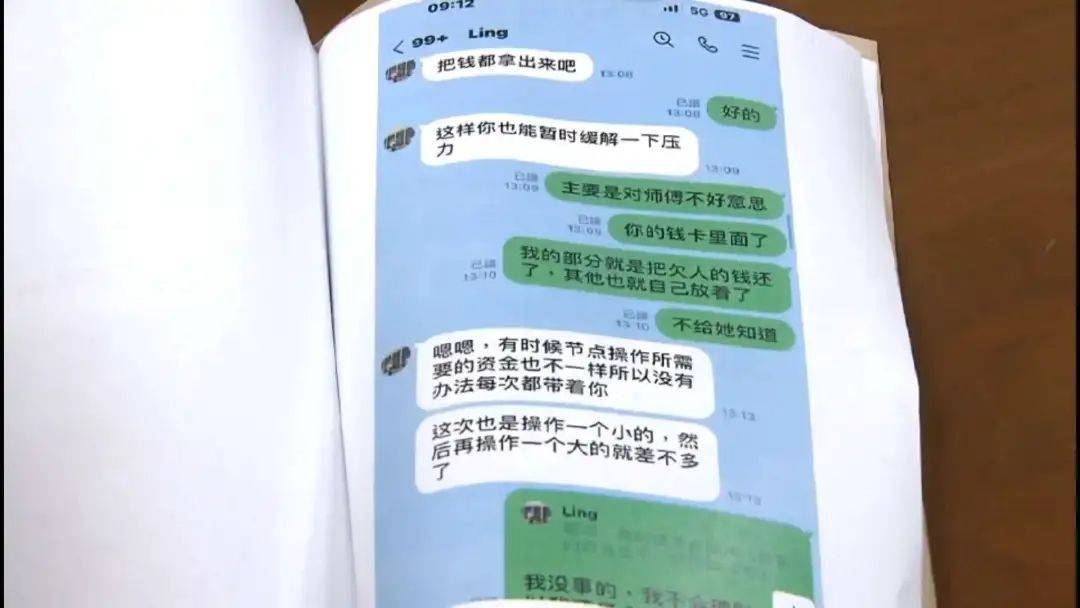 09:12
5G 97
99+ Ling
把钱都拿出来吧
13:08
已讀
13:08
好的
这样你也能暂时缓解一下压
力
13:09
已讀
13:09
主要是对师傅不好意思
已讀
13:09
你的钱卡里面了
已讀
13:10
我的部分就是把欠人的钱还
了，其他也就自己放着了
已讀
13:10
不给她知道
嗯嗯，有时候节点操作所需
要的资金也不一样所以没有
办法每次都带着你
13:13
这次也是操作一个小的，然
后再操作一个大的就差不多
了
13:13
Ling
我没事的，我不会